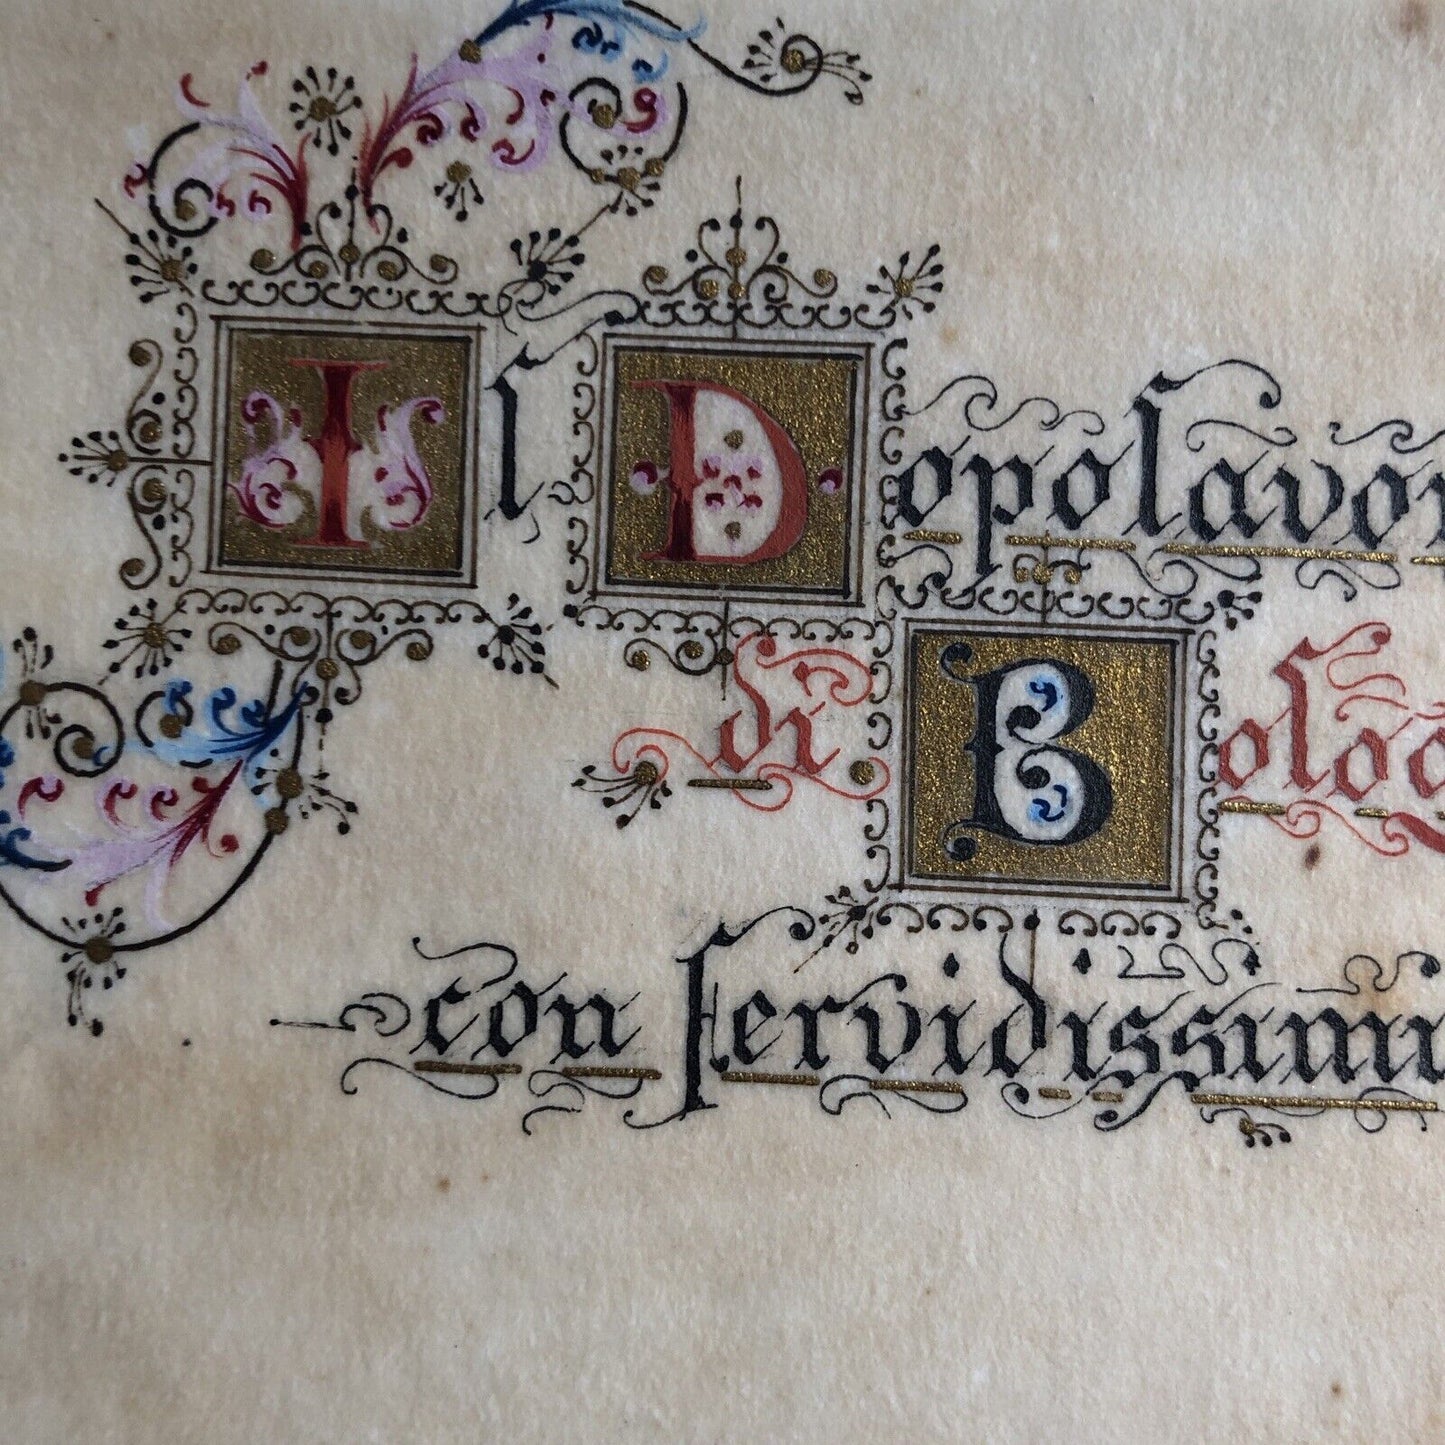 Il Dopolavor
di Bolog
con fervidissimi